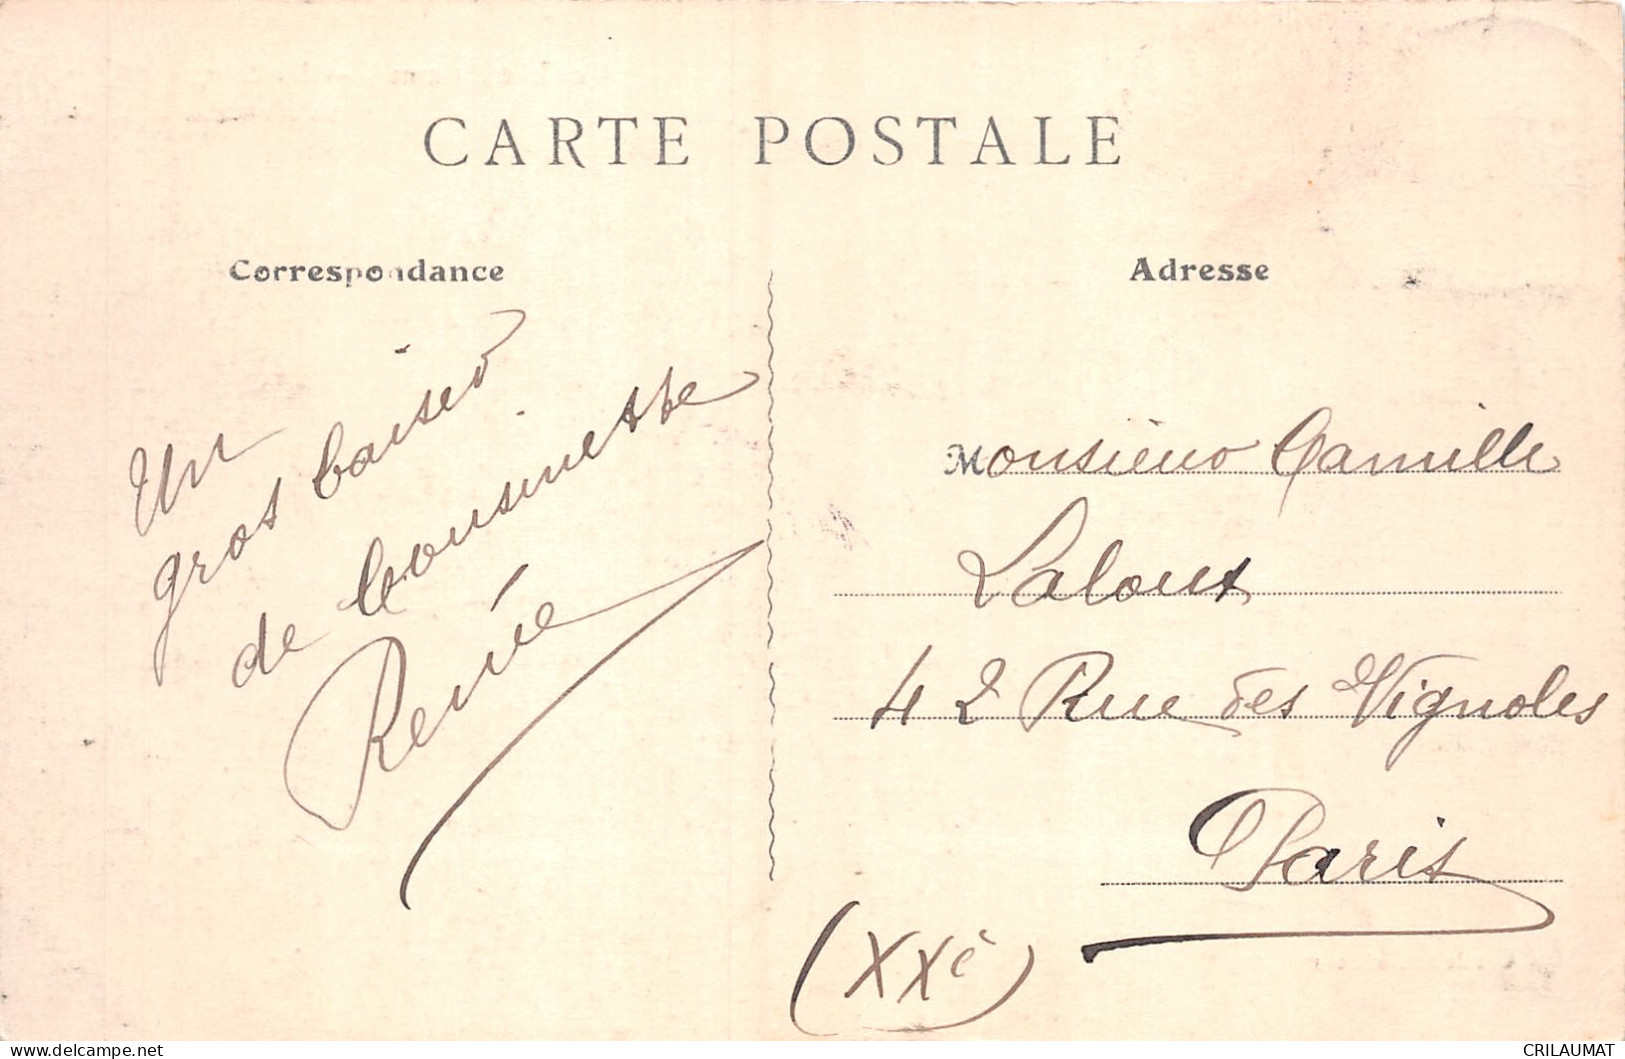 CARTE POSTALE
Correspondance
Un
gros baiser
de Cousinette
Renée
Adresse
Monsieur Camille
Laloux
42 Rue des Vignoles
Paris
(XXè)
www.delcampe.net
CRILAUMAT